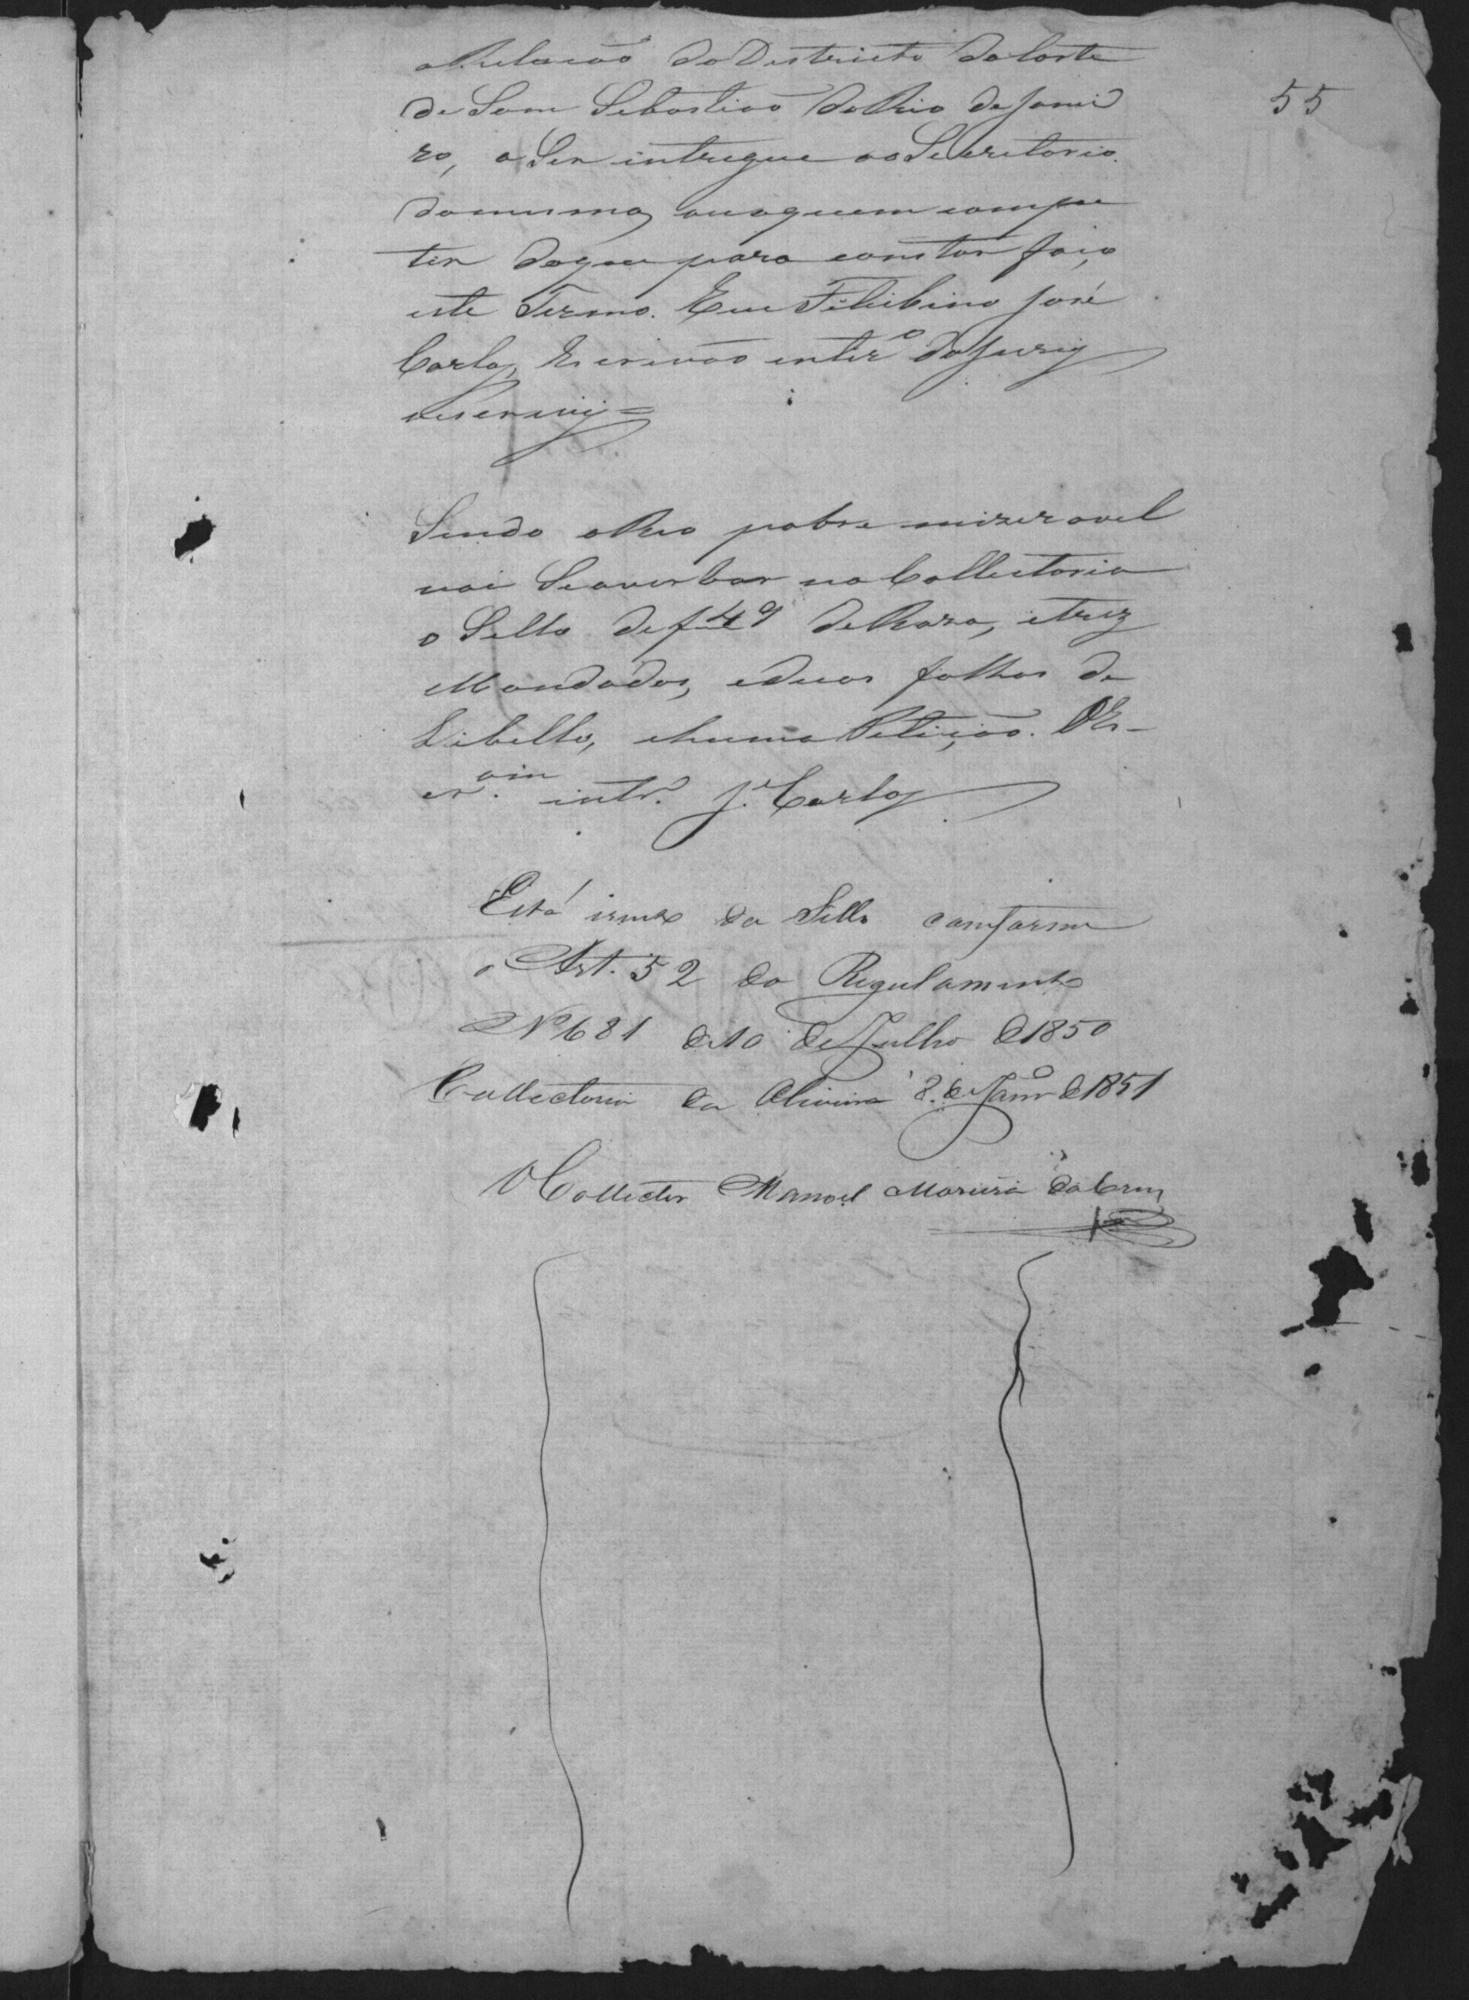 aRelacaõ do Destricto da Corte
de Sam Sebastiaõ do Rio de Janei
55
ro, a Ser intregue ao Secretario
da mesma, ou aquem compe
tir do que para constar faço
este Termo. Eu Felisbino José
Carlos, Escrivaõ interº do Jury
o escrevi =
Sendo o Reo pobre mizeravel
vai Se averbar na Collectoria
o Sello de f 49 de Raza, e trez
Mandados, e duas folhas de
Libello, e huma Petiçaõ. O Es-
cr.am intrº. J. Carlos
Está izento do Sello comforme
o Art. 52 do Regulamento
Nº 681 de 10 de Julho de 1850
Collectoria da Oliveira 8. de Janrº de 1851
O Collector Manoel Moreira da Cruz